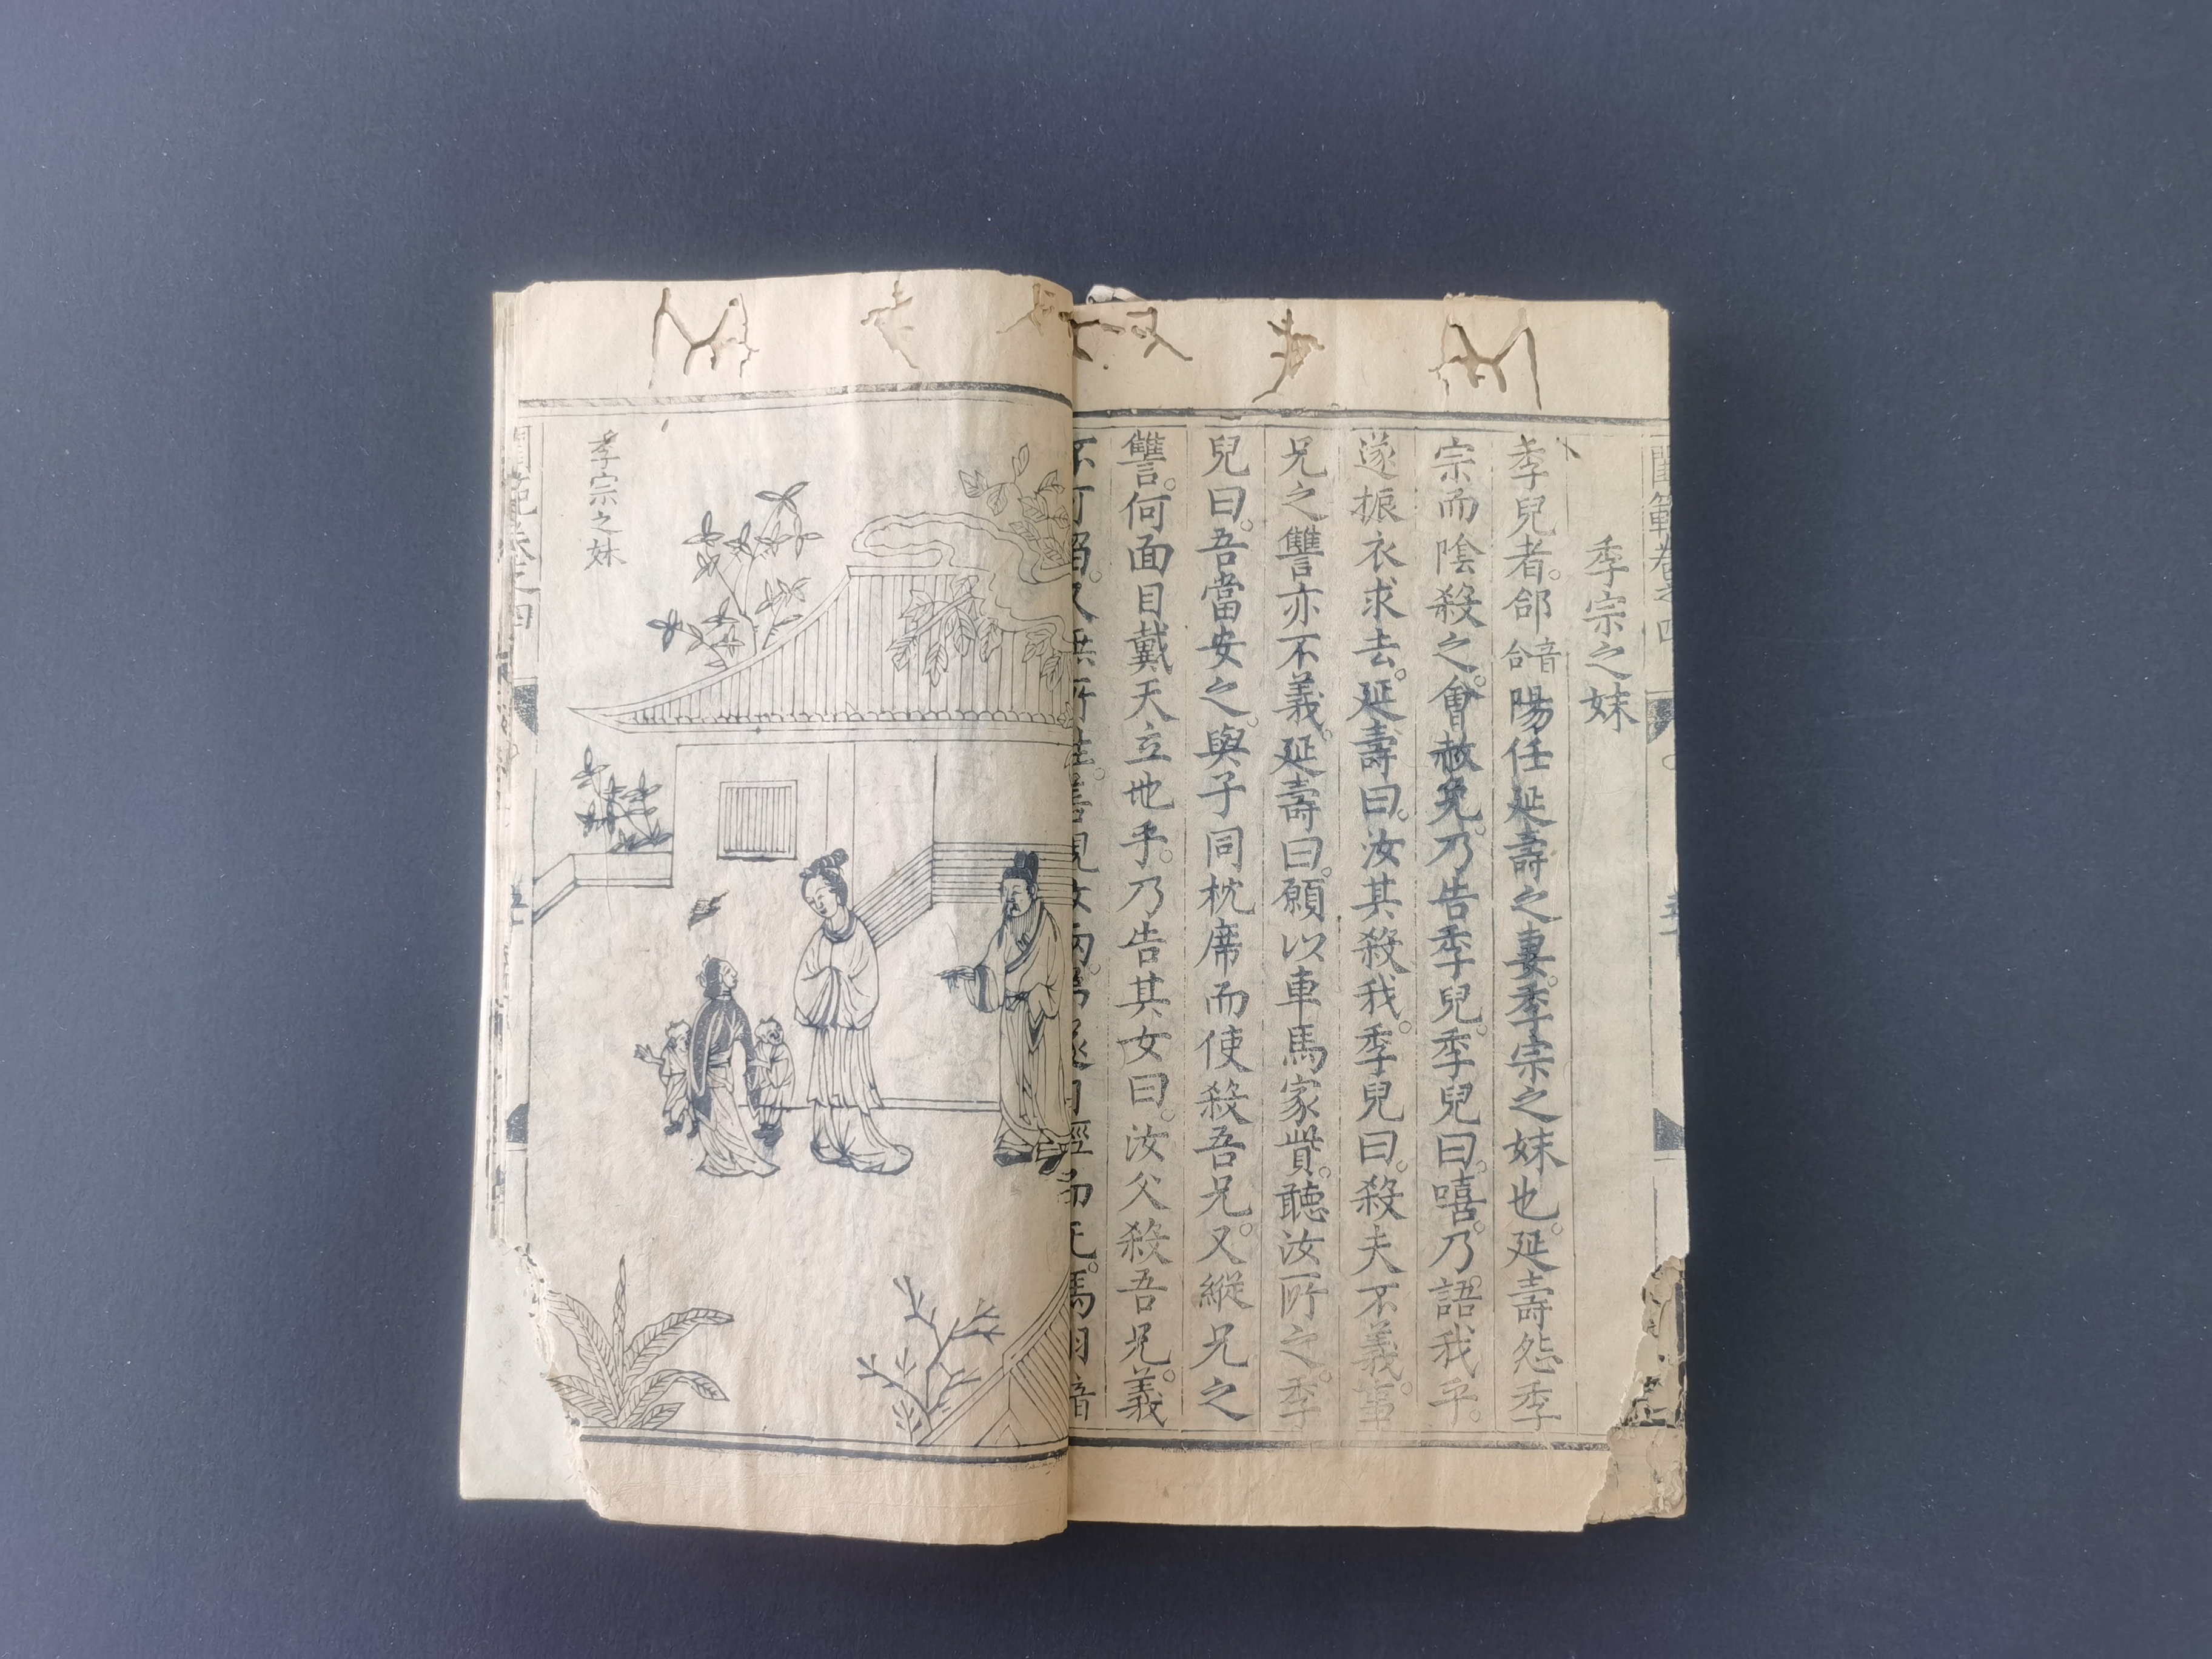 閨範卷之四
季宗之妹
季兒者。郃音合陽任延壽之妻。季宗之妹也。延壽怨季
宗而陰殺之。會赦免。乃告季兒。季兒曰。嘻。乃語我乎。
遂振衣求去。延壽曰。汝其殺我。季兒曰。殺夫不義。事
兄之讐亦不義。延壽曰。願以車馬家貲。聽汝所之。季
兒曰。吾當安之。與子同枕席而使殺吾兄。又縱兄之
讐。何面目戴天立地乎。乃告其女曰。汝父殺吾兄。義
不可留。又
季宗之妹
閨範卷之四